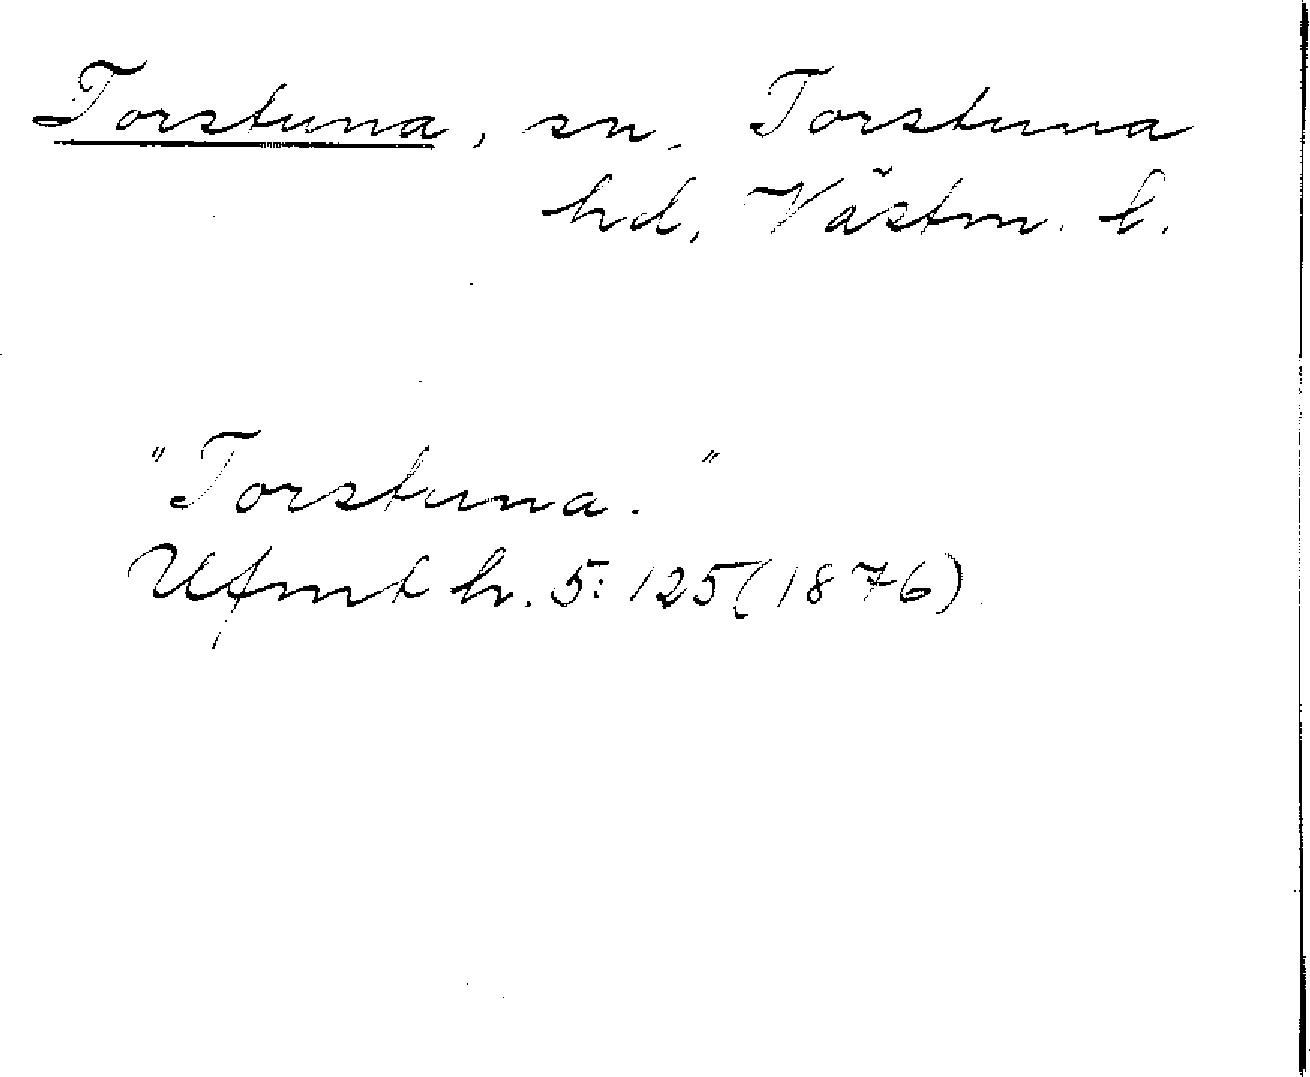 Torstuna, sn, Torstuna
hd, Västm. l.
"Torstuna."
Ufmt h. 5: 125 (1876)